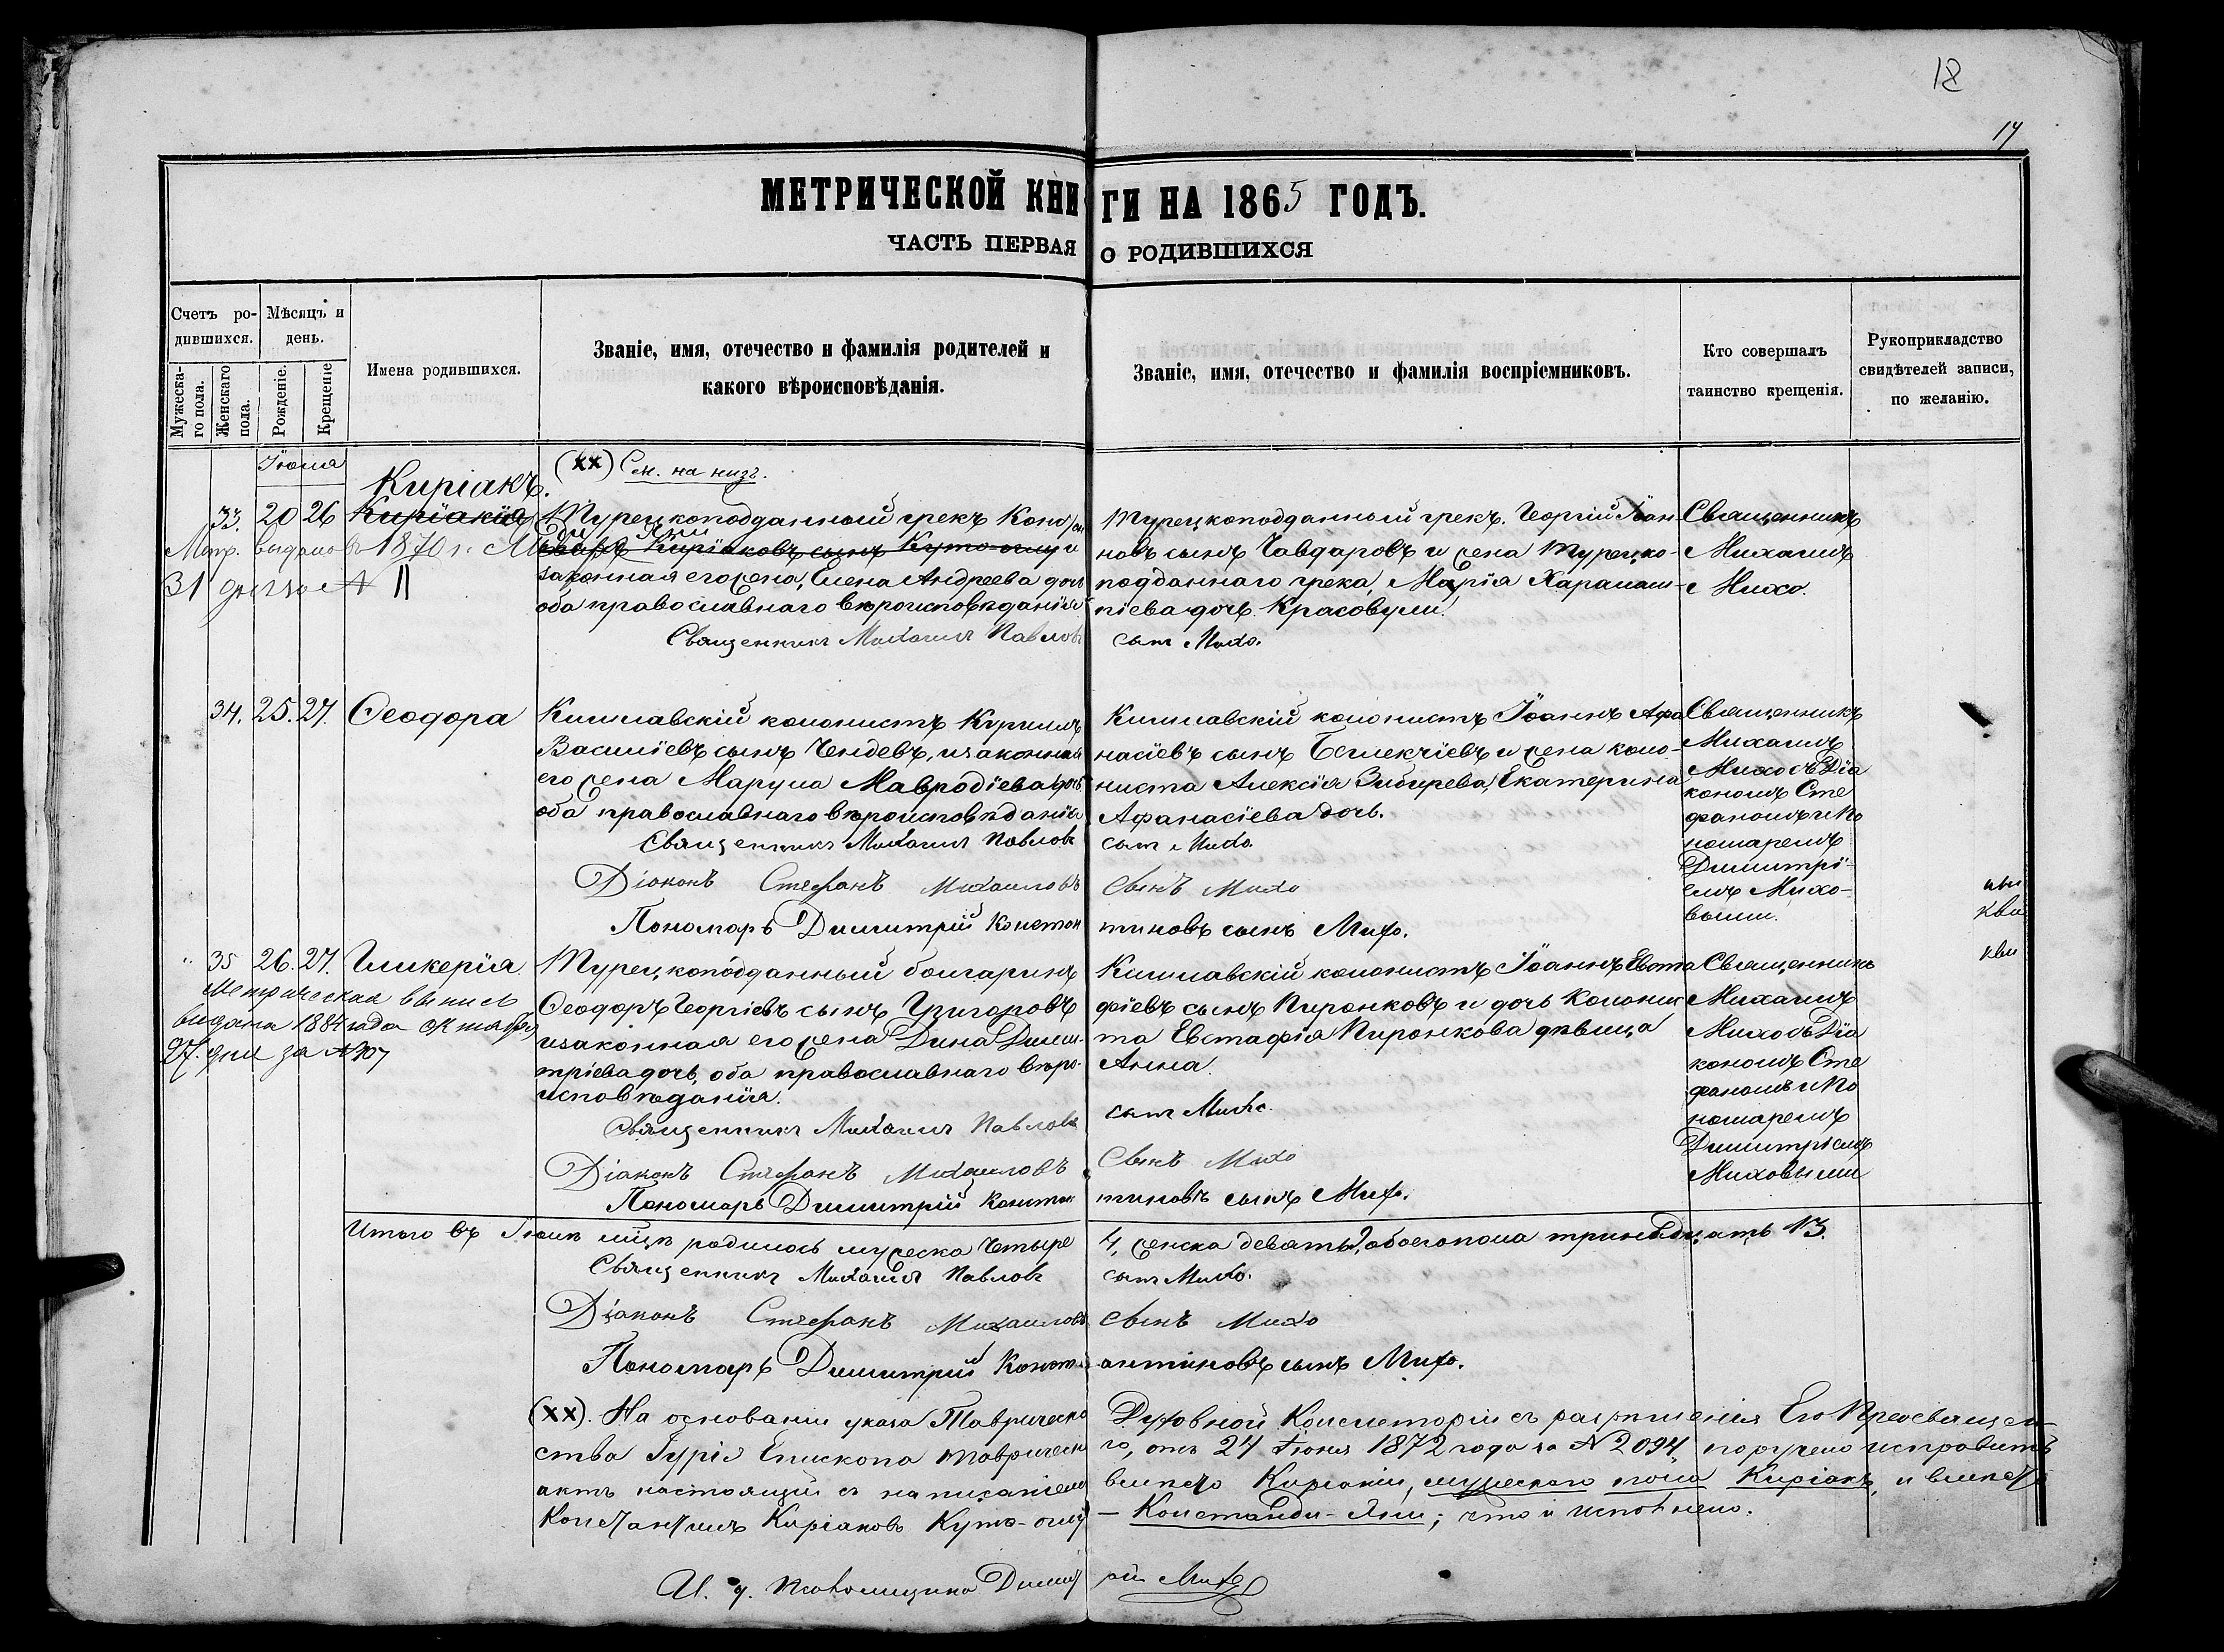 18
17
МЕТРИЧЕСКОЙ КНИГИ НА 1865 ГОДЪ.
ЧАСТЬ ПЕРВАЯ О РОДИВШИХСЯ
Счетъ родившихся.
Мужескаго пола.
Женскаго пола.
Мѣсяцъ и день.
Рожденіе.
Крещеніе
Имена родившихся.
Званіе, имя, отечество и фамилія родителей и
какого вѣроисповѣданія.
Званіе, имя, отечество и фамилія воспріемниковъ.
Кто совершалъ
таинство крещенія.
Рукоприкладство
свидѣтелей записи,
по желанію.
Іюня
Киріакъ.
(XX) См. на низъ.
33. 20 26 Киріакія
Метр. выдана въ 1870 г.
31 дня за № 11
Турецкоподданный грекъ Конс
ди Яни
Киріаковъ сынъ Куто-оглу и
законная его жена, Елена Андреева дочь
оба православнаго вѣроисповѣданія
Священникъ Михаилъ Павловъ сынъ Михо.
Турецкоподданный грекъ. Георгій Іоан-
новъ сынъ Чавдаровъ и жена турецко-
подданнаго грека, Марія Харалам-
піева дочь Красовули.
Священникъ
Михаилъ
Михо.
34. 25. 27. Ѳеодора
Кишлавскій колонистъ Кириллъ
Василіевъ сынъ Чендевъ, и законная
его жена Маруша Мавродіева дочь
оба православнаго вѣроисповѣданія
Священникъ Михаилъ Павловъ сынъ Михо
Діаконъ Стефанъ Михаиловъ сынъ Михо
Пономарь Димитрій Константиновъ сынъ Михо.
Кишлавскій колонистъ Іоаннъ Афа
насіевъ сынъ Беглекчіевъ и жена коло-
ниста Алексія Зибирева, Екатерина
Афанасіева дочь.
Священникъ
Михаилъ
Михо съ Діа
кономъ Сте
фаномъ и По
номаремъ
Димитрі-
емъ Михо-
выми.
35 26. 27. Гликерія.
Метрическая выпись
выдана 1884 года октября
27. дня за № 307
Турецкоподданный болгаринъ
Ѳеодоръ Георгіевъ сынъ Григоровъ
и законная его жена Дина Дими-
тріева дочь, оба православнаго вѣро-
исповѣданія.
Священникъ Михаилъ Павловъ сынъ Михо.
Діаконъ Стефанъ Михаиловъ сынъ Михо
Пономарь Димитрій Константиновъ сынъ Михо.
Кишлавскій колонистъ Іоаннъ Евста
фіевъ сынъ Пиронковъ и дочь колонис
та Евстафія Пиронкова дѣвица
Анна.
Священникъ
Михаилъ
Михо съ Діа
кономъ Сте
фаномъ и По
номаремъ
Димитріемъ
Миховыми
Итого въ Іюнѣ мцѣ родилось мужеска четыре 4, женска девять 9, обоего пола тринадцать 13.
Священникъ Михаилъ Павловъ сынъ Михо.
Діаконъ Стефанъ Михаиловъ сынъ Михо
Пономарь Димитрій Константиновъ сынъ Михо.
(XX). На основаніи указа Таврической Духовной Консисторіи съ разрѣшенія Его Преосвящен-
ства Гурія Епископа Таврическаго, отъ 24 Іюня 1872 года за № 2094, поручено исправить
актъ настоящій съ написаніемъ вмѣсто Киріакіи, мужескаго пола Киріакъ, и вмѣсто
Константинъ Киріаковъ Куто-оглу – Констанди-Яни; что и исполнено.
И. д. Псаломщика Димитрій Михо